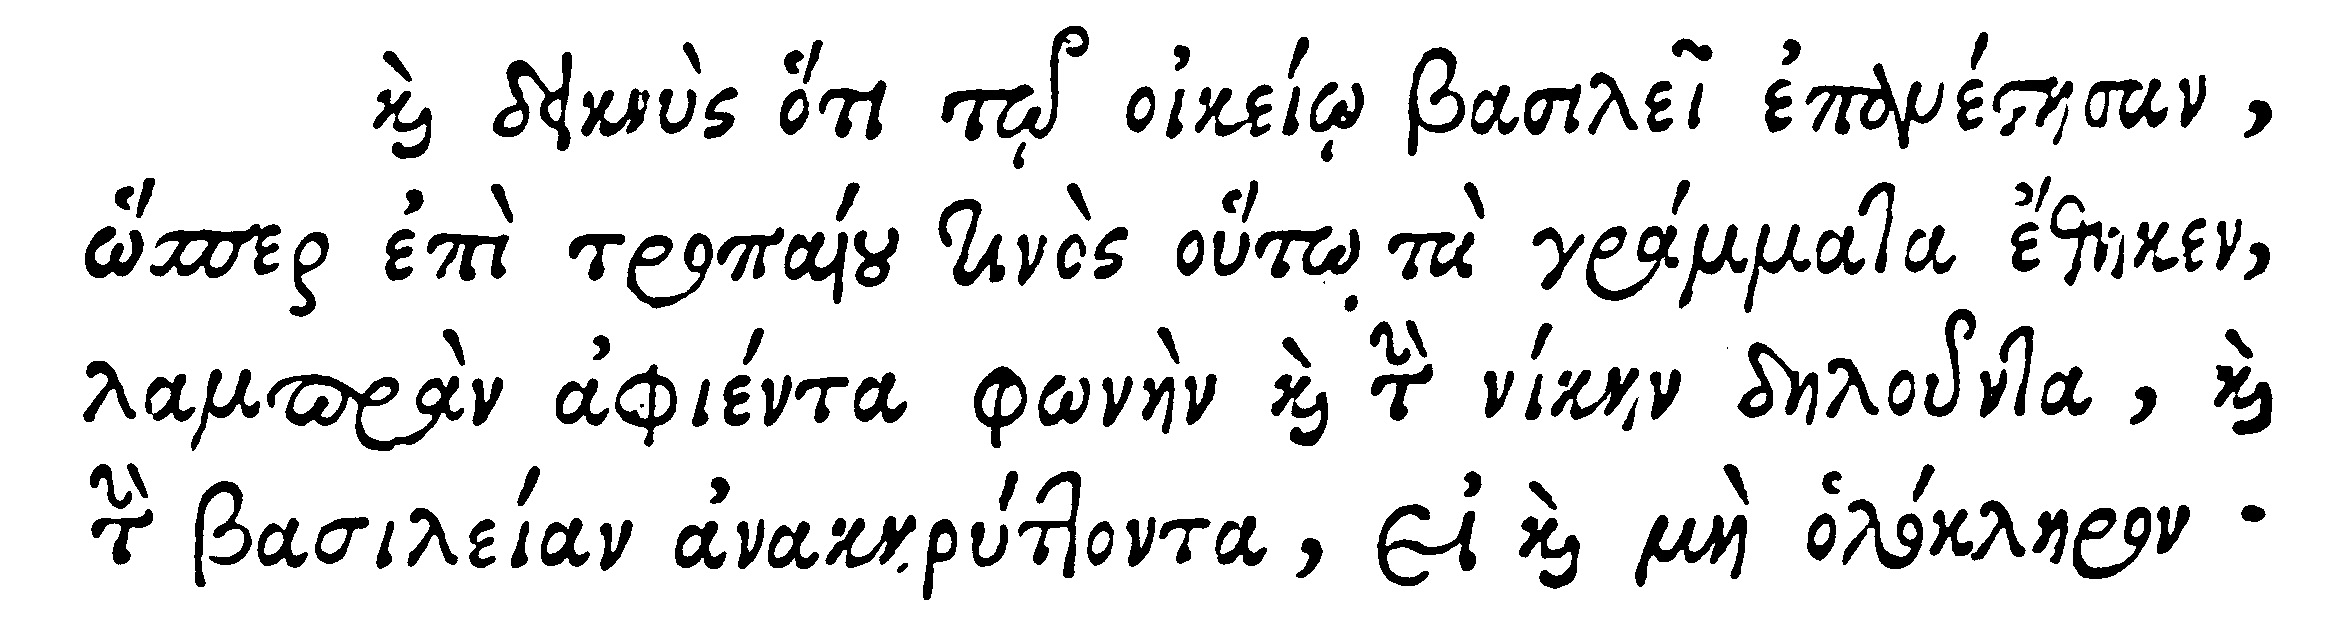 καὶ δεικνὺς ὅτι τῷ οἰκείῳ βασιλεῖ ἐπανέστησαν,
ὥσπερ ἐπὶ τροπαίου τινὸς οὕτω τὰ γράμματα ἔθηκεν,
λαμπρὰν ἀφιέντα φωνὴν καὶ τὴν νίκην δηλοῦντα, καὶ
τὴν βασιλείαν ἀνακηρύττοντα, εἰ καὶ μὴ ὁλόκληρον ·